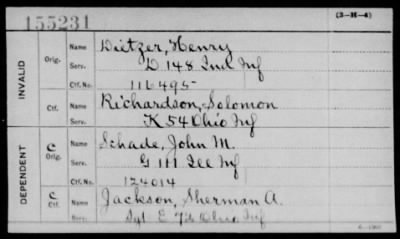 155231
(3-H-4)
INVALID
Orig.
Name Dietzer, Henry
Serv. D 148 Ind Inf
Ctf. No. 116495
Ctf.
Name Richardson, Solomon
Serv. K 54 Ohio Inf
DEPENDENT
C
Orig.
Name Schade, John M.
Serv. G 111 Ill Inf
Ctf. No. 124014
C
Ctf.
Name Jackson, Sherman A.
Serv. Sgt E 72 Ohio Inf